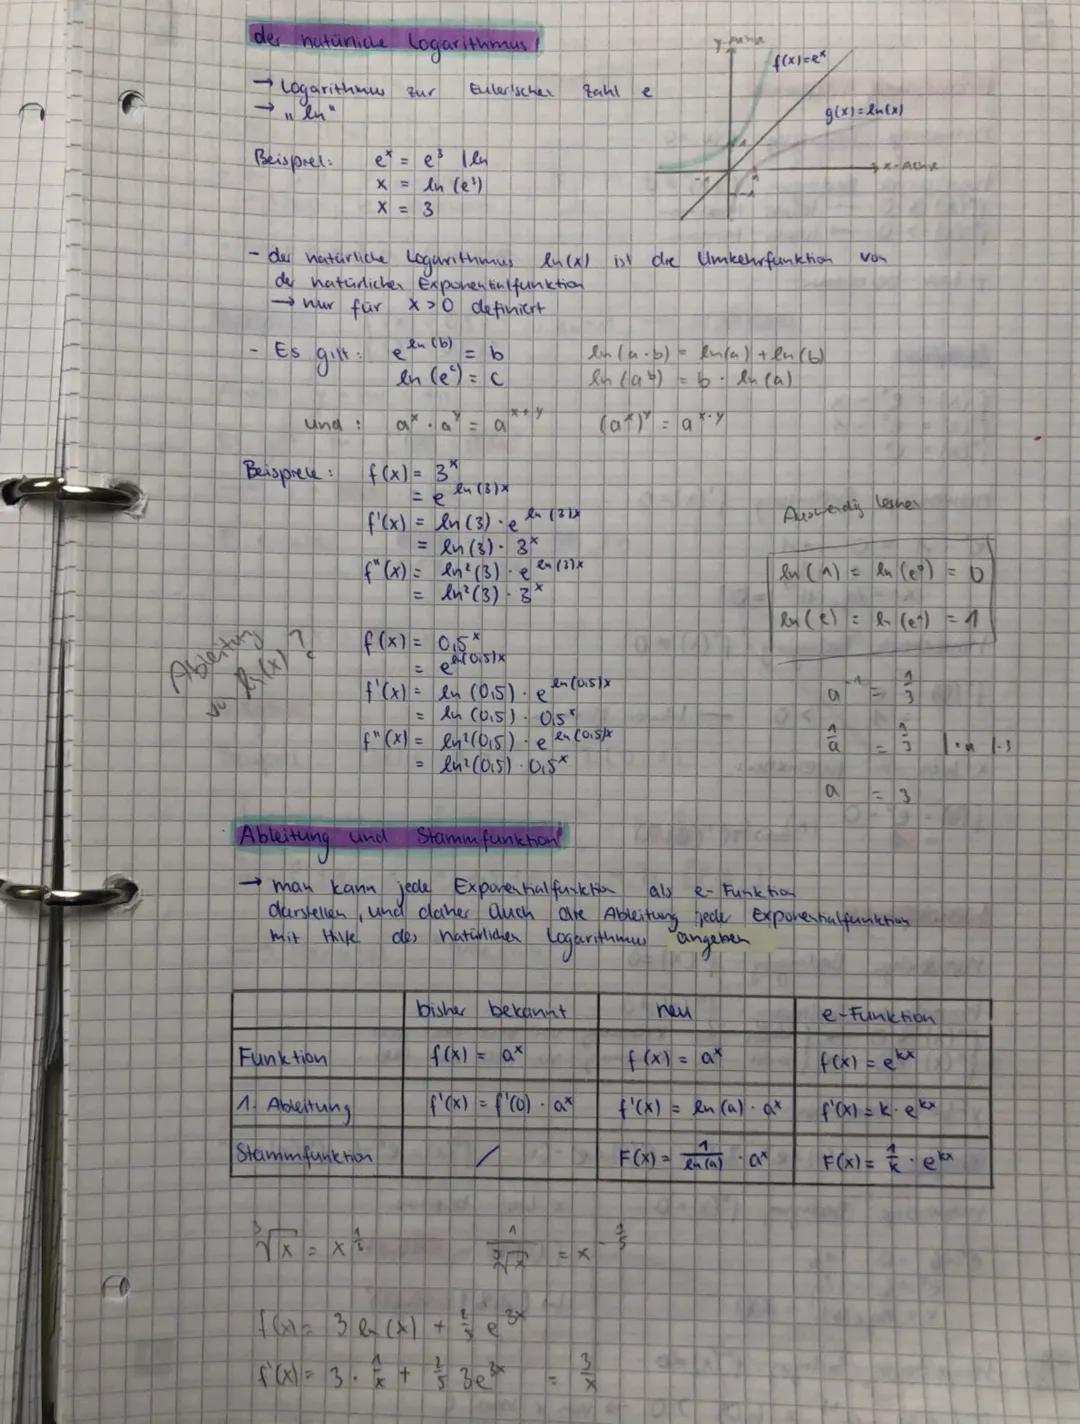 der natürliche Logarithmus!
y-Achse
f(x)=eˣ
g(x)=ln(x)
x-Achse
→ Logarithmus zur Eulerschen Zahl e
→ „ln"
Beispiel: eˣ = e³ | ln
x = ln (e³)
x = 3
- der natürliche Logarithmus ln(x) ist die Umkehrfunktion von
der natürlichen Exponentialfunktion
→ nur für x > 0 definiert
- Es gilt: e^ln(b) = b ln(a·b) = ln(a) + ln(b)
ln(e^c) = c ln(a^b) = b · ln(a)
und: aˣ · a^y = a^x+y (aˣ)^y = a^x·y
Beispiele: f(x) = 3ˣ
= e^ln(3)x
f'(x) = ln(3) · e^ln(3)x
= ln(3) · 3ˣ
f"(x) = ln²(3) · e^ln(3)x
= ln²(3) · 3ˣ
Auswendig lernen
ln(1) = ln(e⁰) = 0
ln(e) = ln(e¹) = 1
Ableitung
ln(x)?
f(x) = 0,5ˣ
= e^ln(0,5)x
f'(x) = ln(0,5) · e^ln(0,5)x
= ln(0,5) · 0,5ˣ
f"(x) = ln²(0,5) · e^ln(0,5)x
= ln²(0,5) · 0,5ˣ
a⁻¹ = 1/3
1/a = 1/3 | ·a | ·3
a = 3
Ableitung und Stammfunktion!
→ man kann jede Exponentialfunktion als e-Funktion
darstellen, und daher auch die Ableitung jeder Exponentialfunktion
mit Hilfe des natürlichen Logarithmus angeben
bisher bekannt neu e-Funktion
Funktion f(x) = aˣ f(x) = aˣ f(x) = e^kx
1. Ableitung f'(x) = f'(0) · aˣ f'(x) = ln(a) · aˣ f'(x) = k · e^kx
Stammfunktion / F(x) = 1/ln(a) · aˣ F(x) = 1/k · e^kx
³√x = x^1/3
f(x) = 3 ln(x) +
f'(x) = 3 · 1/x +
= 3/x